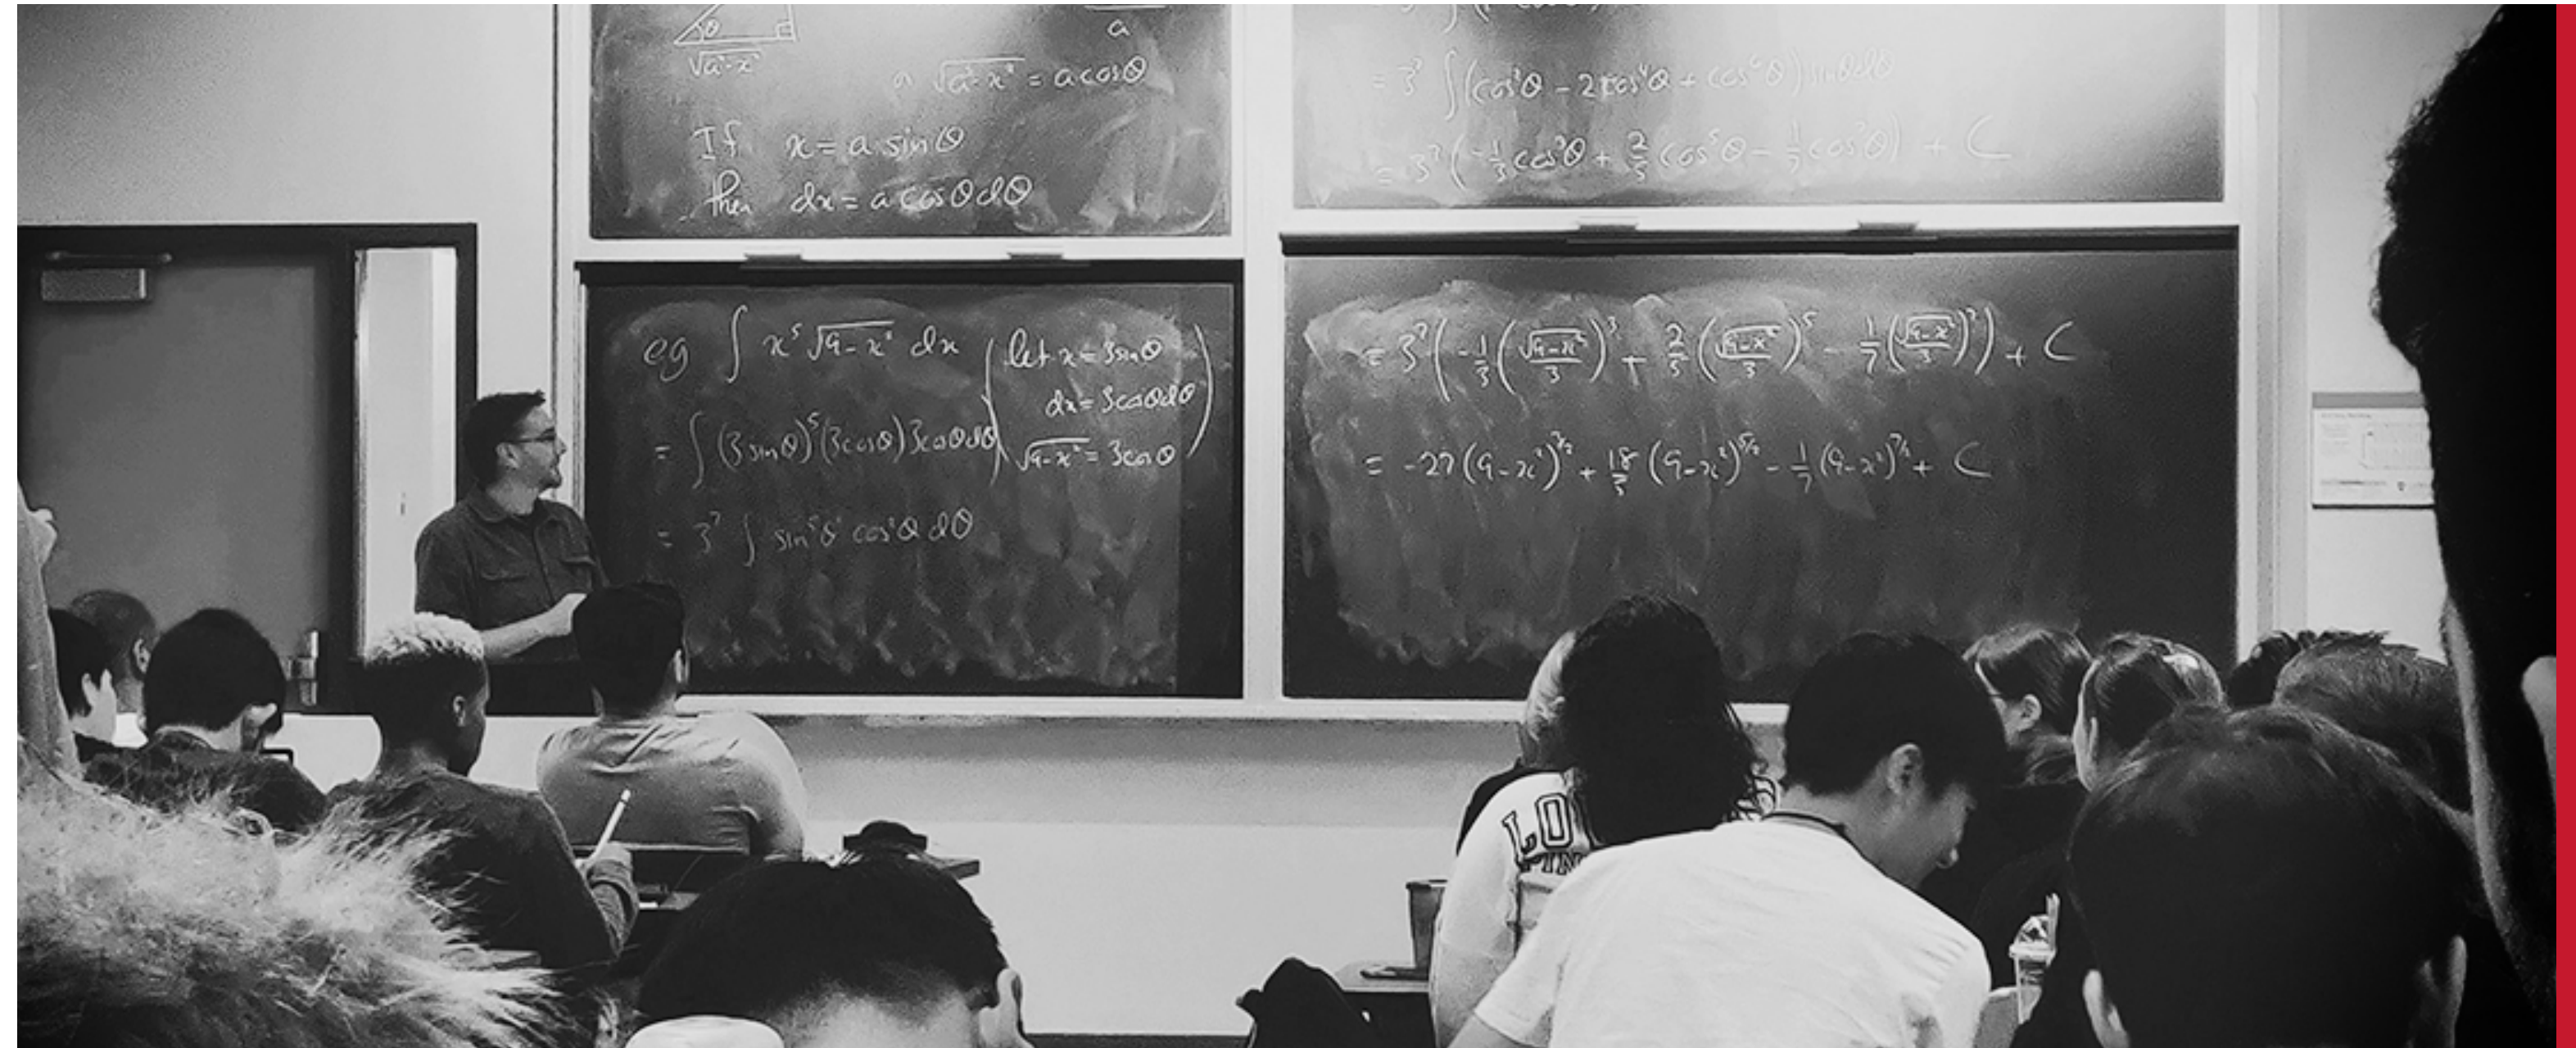 θ
√a²-x²
a
√a²-x² = a cosθ
If x = a sinθ
then dx = a cosθ dθ
eg ∫ x⁵ √9-x² dx (let x = 3sinθ
dx = 3cosθdθ
√9-x² = 3cosθ)
= ∫ (3sinθ)⁵(3cosθ)3cosθdθ
= 3⁷ ∫ sin⁵θ cos²θ dθ
= 3⁷ ∫(cos²θ - 2cos⁴θ + cos⁶θ) sinθdθ
= 3⁷(-1/3 cos³θ + 2/5 cos⁵θ - 1/7 cos⁷θ) + C
= 3⁷(-1/3(√9-x²/3)³ + 2/5(√9-x²/3)⁵ - 1/7(√9-x²/3)⁷) + C
= -27(9-x²)^3/2 + 18/5(9-x²)^5/2 - 1/7(9-x²)^7/2 + C
LO